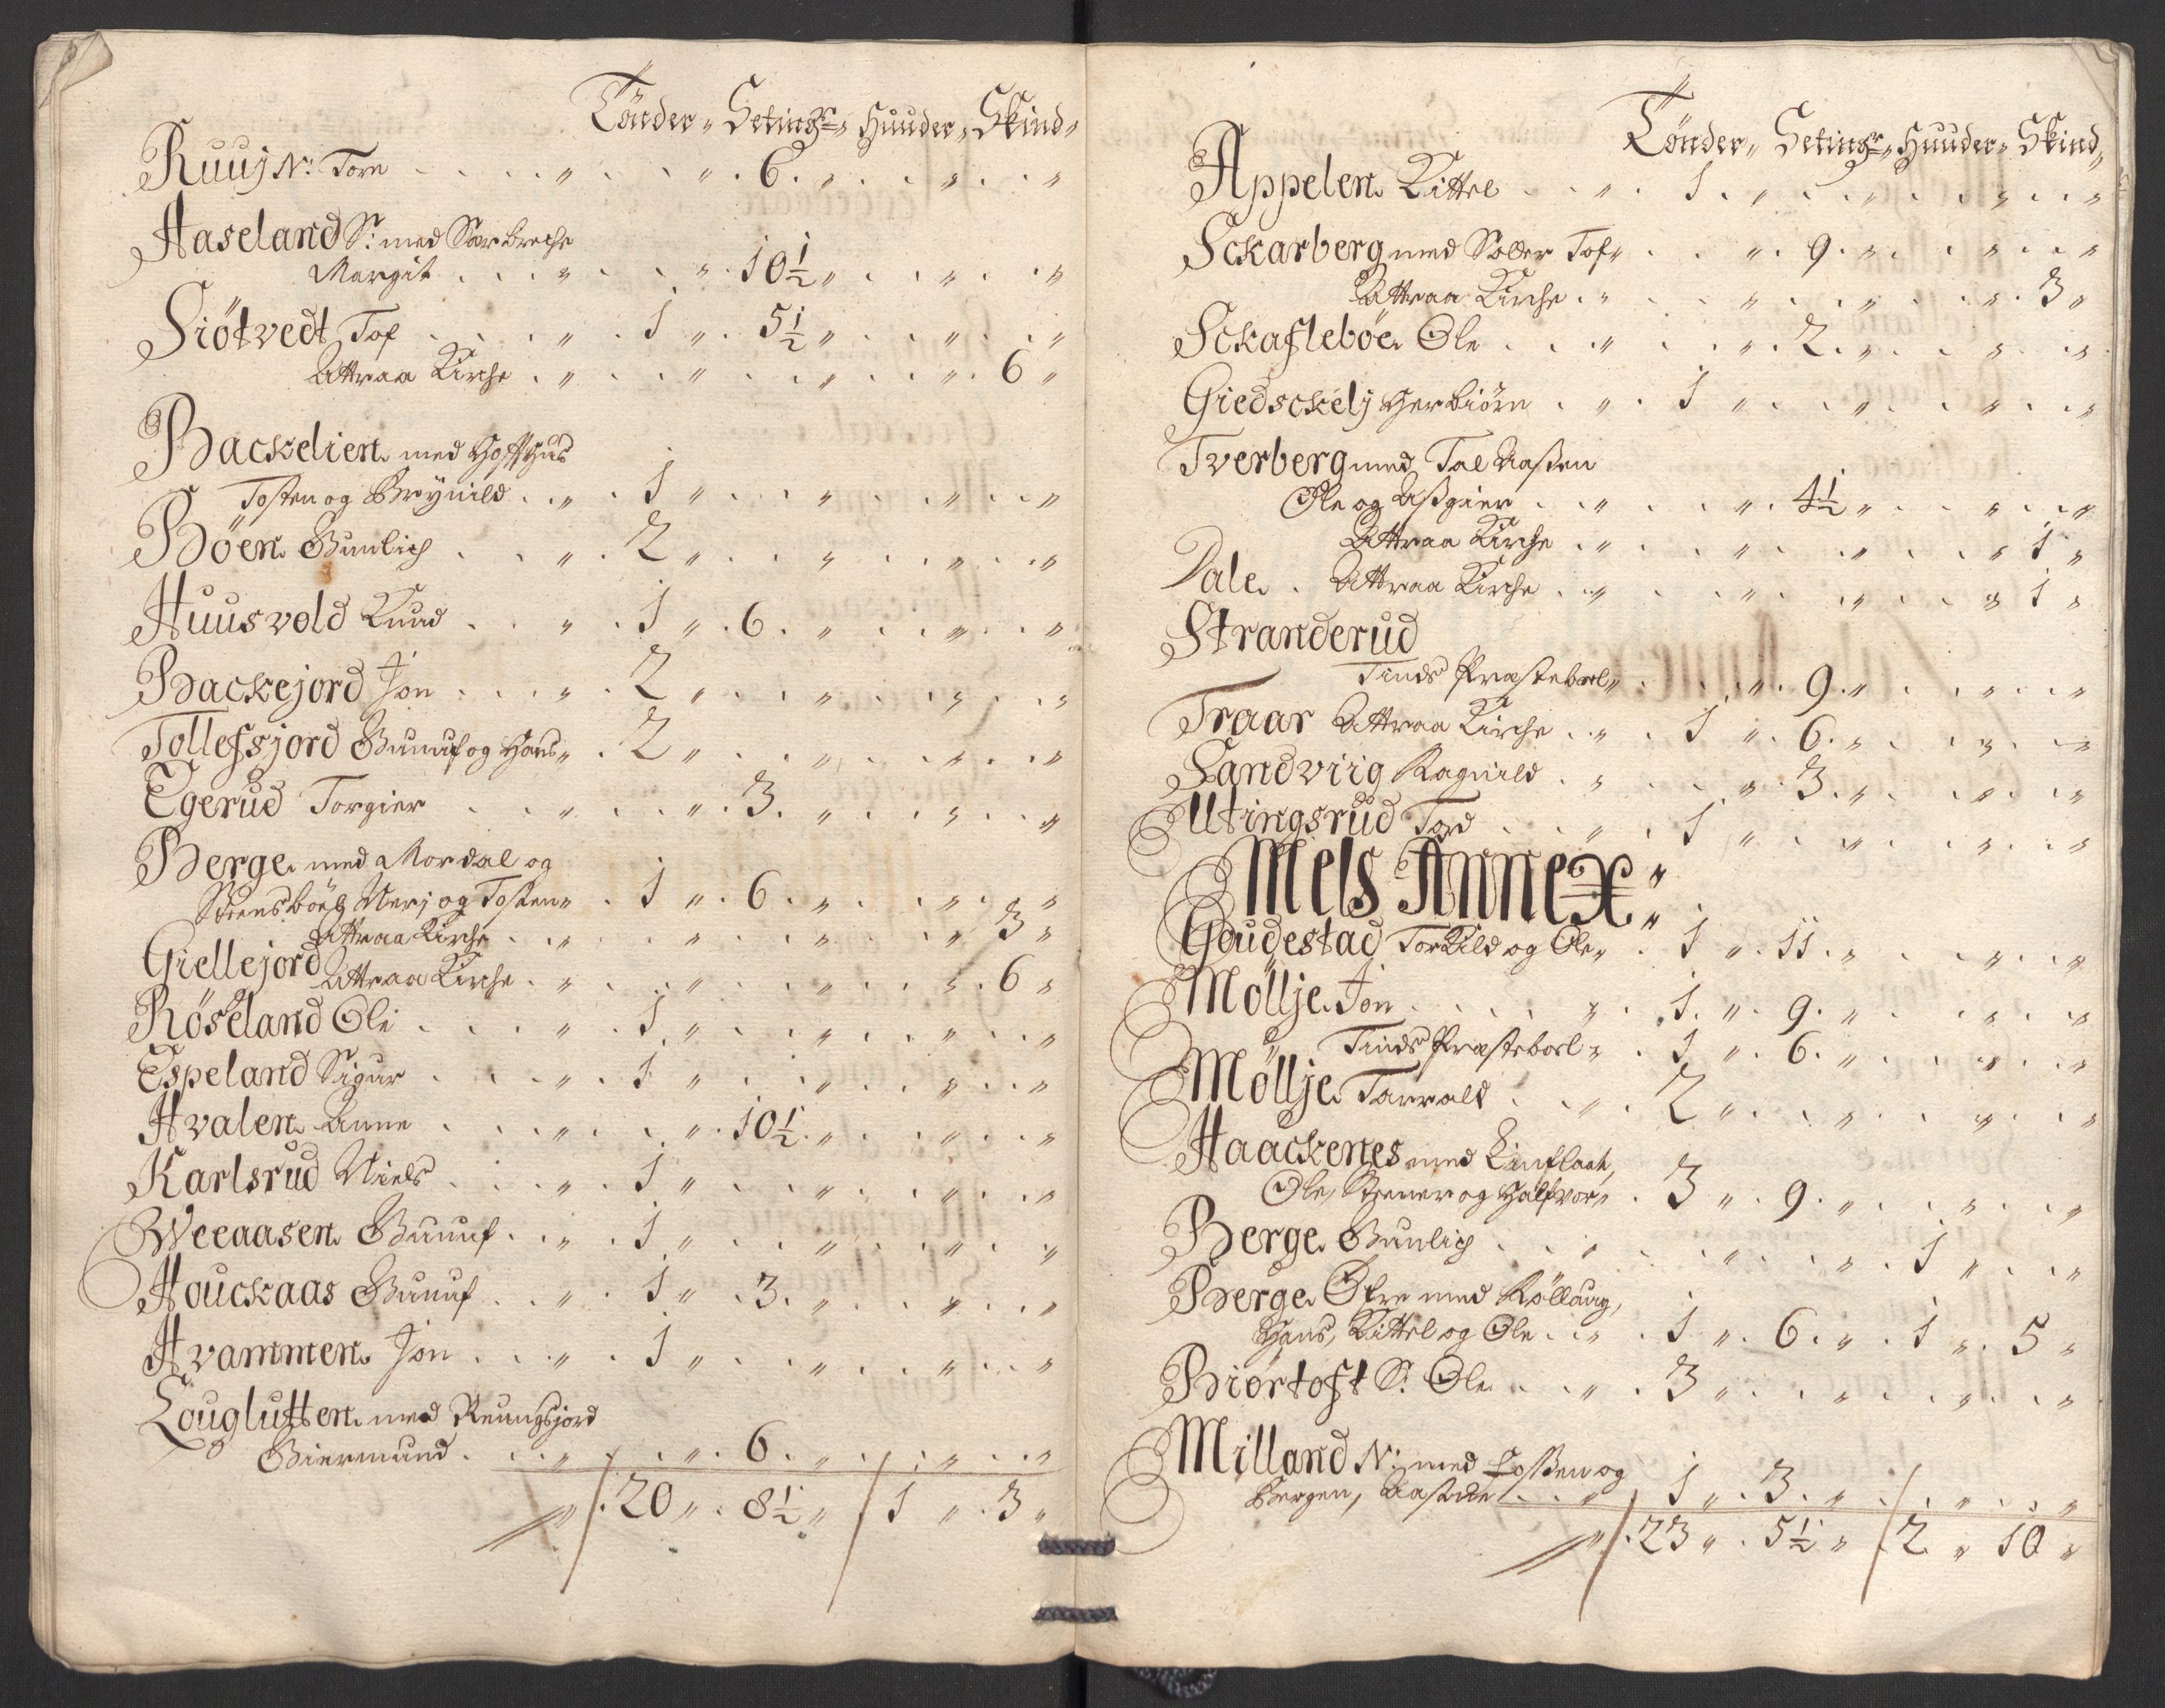 Tönder„ Seting„ Huuder„ Skind„
Ruuj N: Tore . . . . „ . . „ . 6 . „ . . „ . . „
Aaseland S: med Sarbreche
Margit . . . „ . . „ . 10½ „ . . „ . . „
Siötvedt Tof . . . „ . 1 „ . 5½ „ . . „ . . „
Attraa Kirche . „ . . „ . . „ . . „ . 6 „
Backelien med Hofthus
Tosten og Brynild . . „ . 1 „ . . „ . . „ . . „
Böen Gunlich . . „ . 2 „ . . „ . . „ . . „
Huusvold Knud . . „ . 1 „ . 6 . „ . . „ . . „
Backejord Jon . . . „ . 2 „ . . „ . . „ . . „
Tollefsjord Gunuf og Hans „ . 2 „ . . „ . . „ . . „
Egerud Torgier . . „ . . „ . 3 . „ . . „ . . „
Berge med Mordal og
Steensböel Nerj og Tosten „ . 1 „ . 6 . „ . . „ . . „
Attraa Kirche . . „ . . „ . . „ . . „ 3 „
Giellejord Attraa Kirche . „ . . „ . . „ . . „ . 6 „
Röseland Oli . . . „ . 1 „ . . „ . . „ . . „
Espeland Sigur . . . „ . 1 „ . . „ . . „ . . „
Hvalen Anne . . . „ . . „ . 10½ . „ . . „ . . „
Karlsrud Niels . . . „ . 1 „ . . „ . . „ . . „
Weeaasen Gunuf . . „ . 1 „ . . „ . . „ . . „
Houckaas Gunuf . . „ . 1 „ . 3 . „ . . „ . . „
Hvammen Jon . . . „ . 1 „ . . „ . . „ . . „
Louglutten med Reungsjord
Giermund . . . „ . . „ . 6 . „ . . „ . . „
„ . 20 „ . 8½ „ 1 „ . 3 „
Tönder„ Seting„ Huuder„ Skind„
Appelen Kittel . . „ . 1 . „ . . „ . . „ . . „
Sckarberg med Soller Tof „ . . „ . 9 . „ . . „ . . „
Attraa Kirche . „ . . „ . . „ . . „ . 3 „
Sckafleböe Ole . . . „ . . „ . 2 . „ . . „ . . „
Giedsckelj Herbiörn . „ . 1 „ . . „ . . „ . . „
Tverberg med Tal Aasen
Ole og Asgier . . „ . . „ . 4½ „ . . „ . . „
Attraa Kirche . „ . . „ . . „ . . „ 1 „
Dale . Attraa Kirche . . „ . . „ . . „ . . „ 1 „
Stranderud
Tinds Præsteboel „ . . „ . 9 . „ . . „ . . „
Traar Attraa Kirche . . „ . 1 „ . 6 . „ . . „ . . „
Sandviig Ragnild . . „ . . „ . 3 . „ . . „ . . „
Utingsrud Tord . . . „ . 1 „ . . „ . . „ . . „
Mels Annex „
Goudestad Torkild og Ole „ . 1 „ . 11 . „ . . „ . . „
Möllje Jon . . . . „ . 1 . „ . 9 . „ . . „ . . „
Tinds Præsteboel „ . 1 „ . 6 . „ . . „ . . „
Möllje Tarvald . . „ . 2 „ . . „ . . „ . . „
Haackenes med Einflaat,
Ole, Stener og Halfvor „ . 3 „ . 9 . „ . . „ . . „
Berge Gunlich . . . „ . . „ . . „ . 1 „ . . „
Berge Öfre med Röllaug,
Hans, Kittel og Ole . . „ . 1 „ . 6 . „ . 1 „ . 5 „
Biörtoft S: Ole . . . „ . 3 „ . . „ . . „ . . „
Milland N: med Fossen og
Bergen, Aaste . . „ 1 „ . 3 . „ . . „ . . „
„ . 23 „ . 5½ „ . 2 . „ 10 „